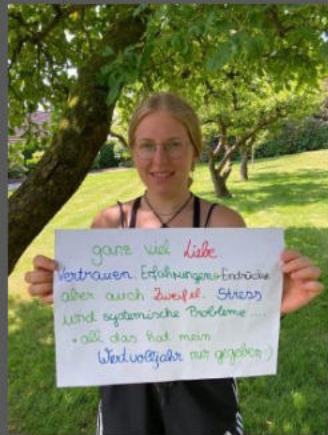 ganz viel Liebe.
Vertrauen. Erfahrungen + Eindrücke
aber auch Zweifel. Stress
und systemische Probleme ....
+ all das hat mein
Wertvolljahr mir gegeben :)